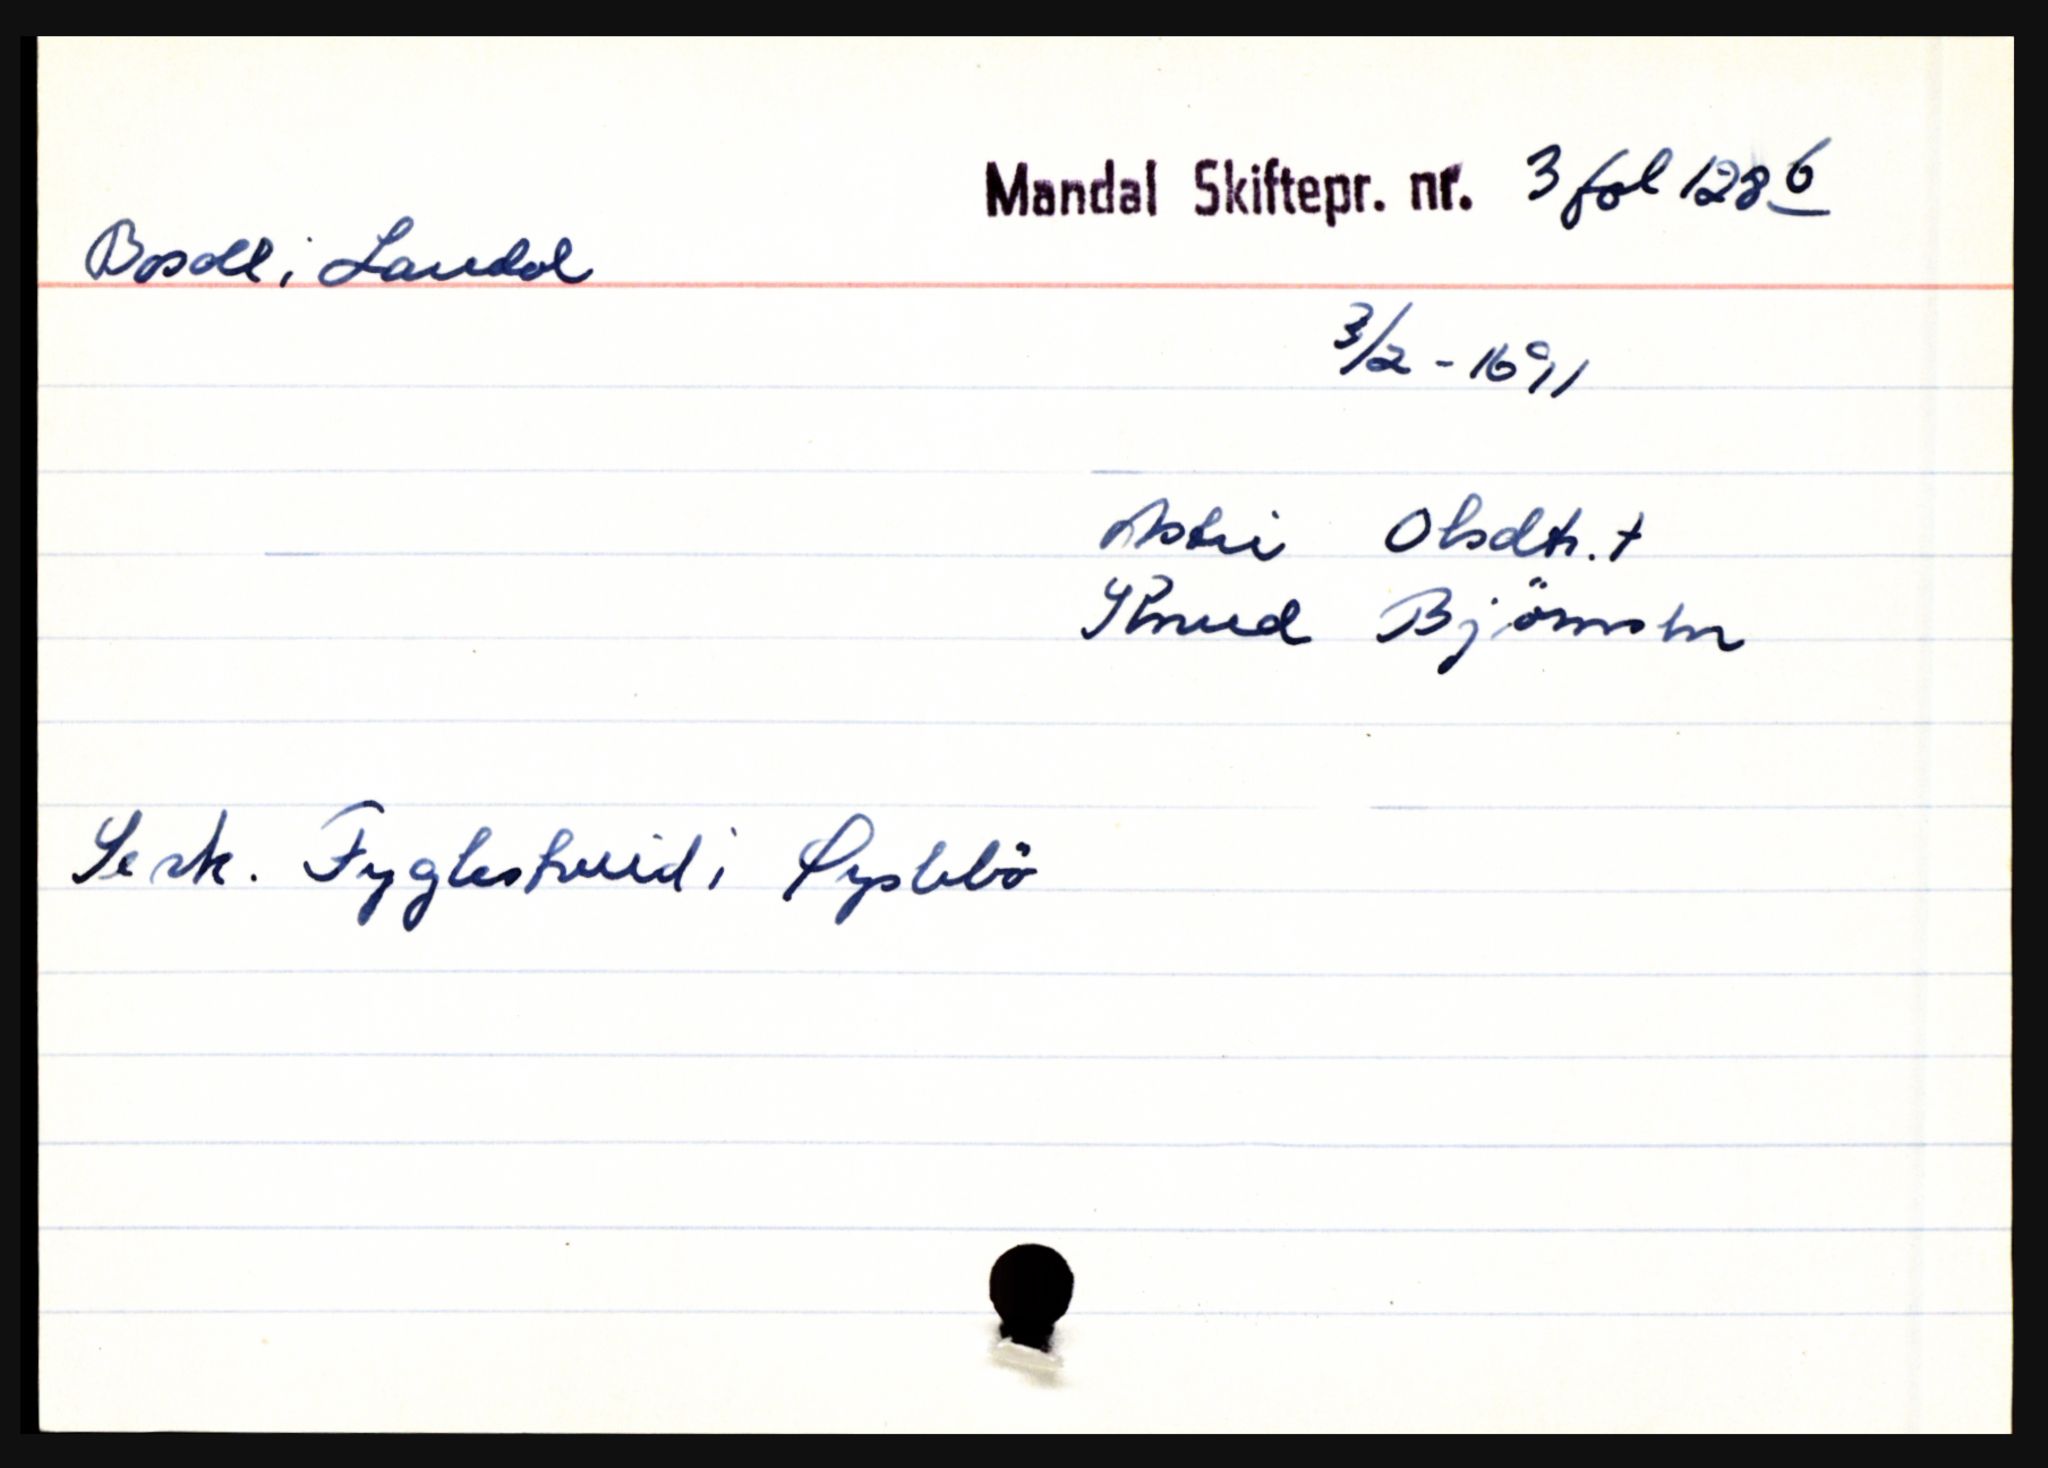 Mandal Skiftepr. nr. 3 fol 128 b
Bosdl i Laudal
3/2 - 1691
Astri Olsdtr. †
Knud Björnsen
Se sk. Fuglestveid i Öyslebö